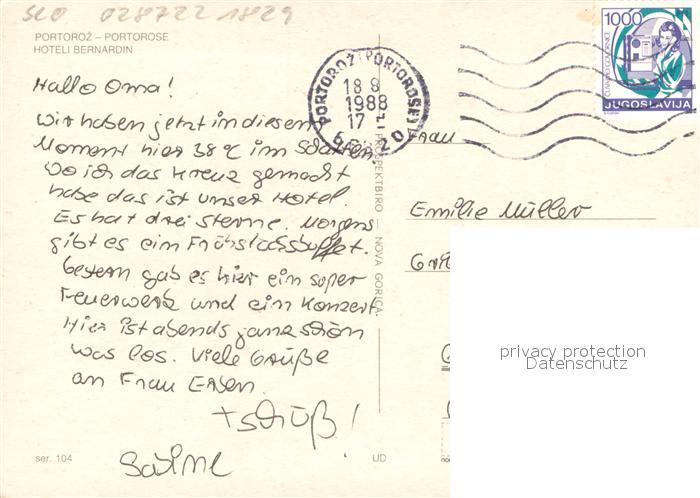 SLO 028722 1829
PORTOROŽ – PORTOROSE
HOTELI BERNARDIN
Hallo Oma!
Wir haben jetzt in diesem
Moment hier 38°C im Schatten.
Wo ich das Kreuz gemacht
habe das ist unser Hotel.
Es hat drei Sterne. Morgens
gibt es ein Frühstücksbuffet.
Gestern gab es hier ein super
Feuerwerk und ein Konzert.
Hier ist abends ganz schön
was los. Viele Grüße
an Frau
Tschüß!
Sabine
ser. 104
UD
PROSPEKTBIRO – NOVA GORICA
PORTOROŽ PORTOROSE
18 8
1988
17
1000
JUGOSLAVIJA
Frau
Emilie Müller
privacy protection
Datenschutz